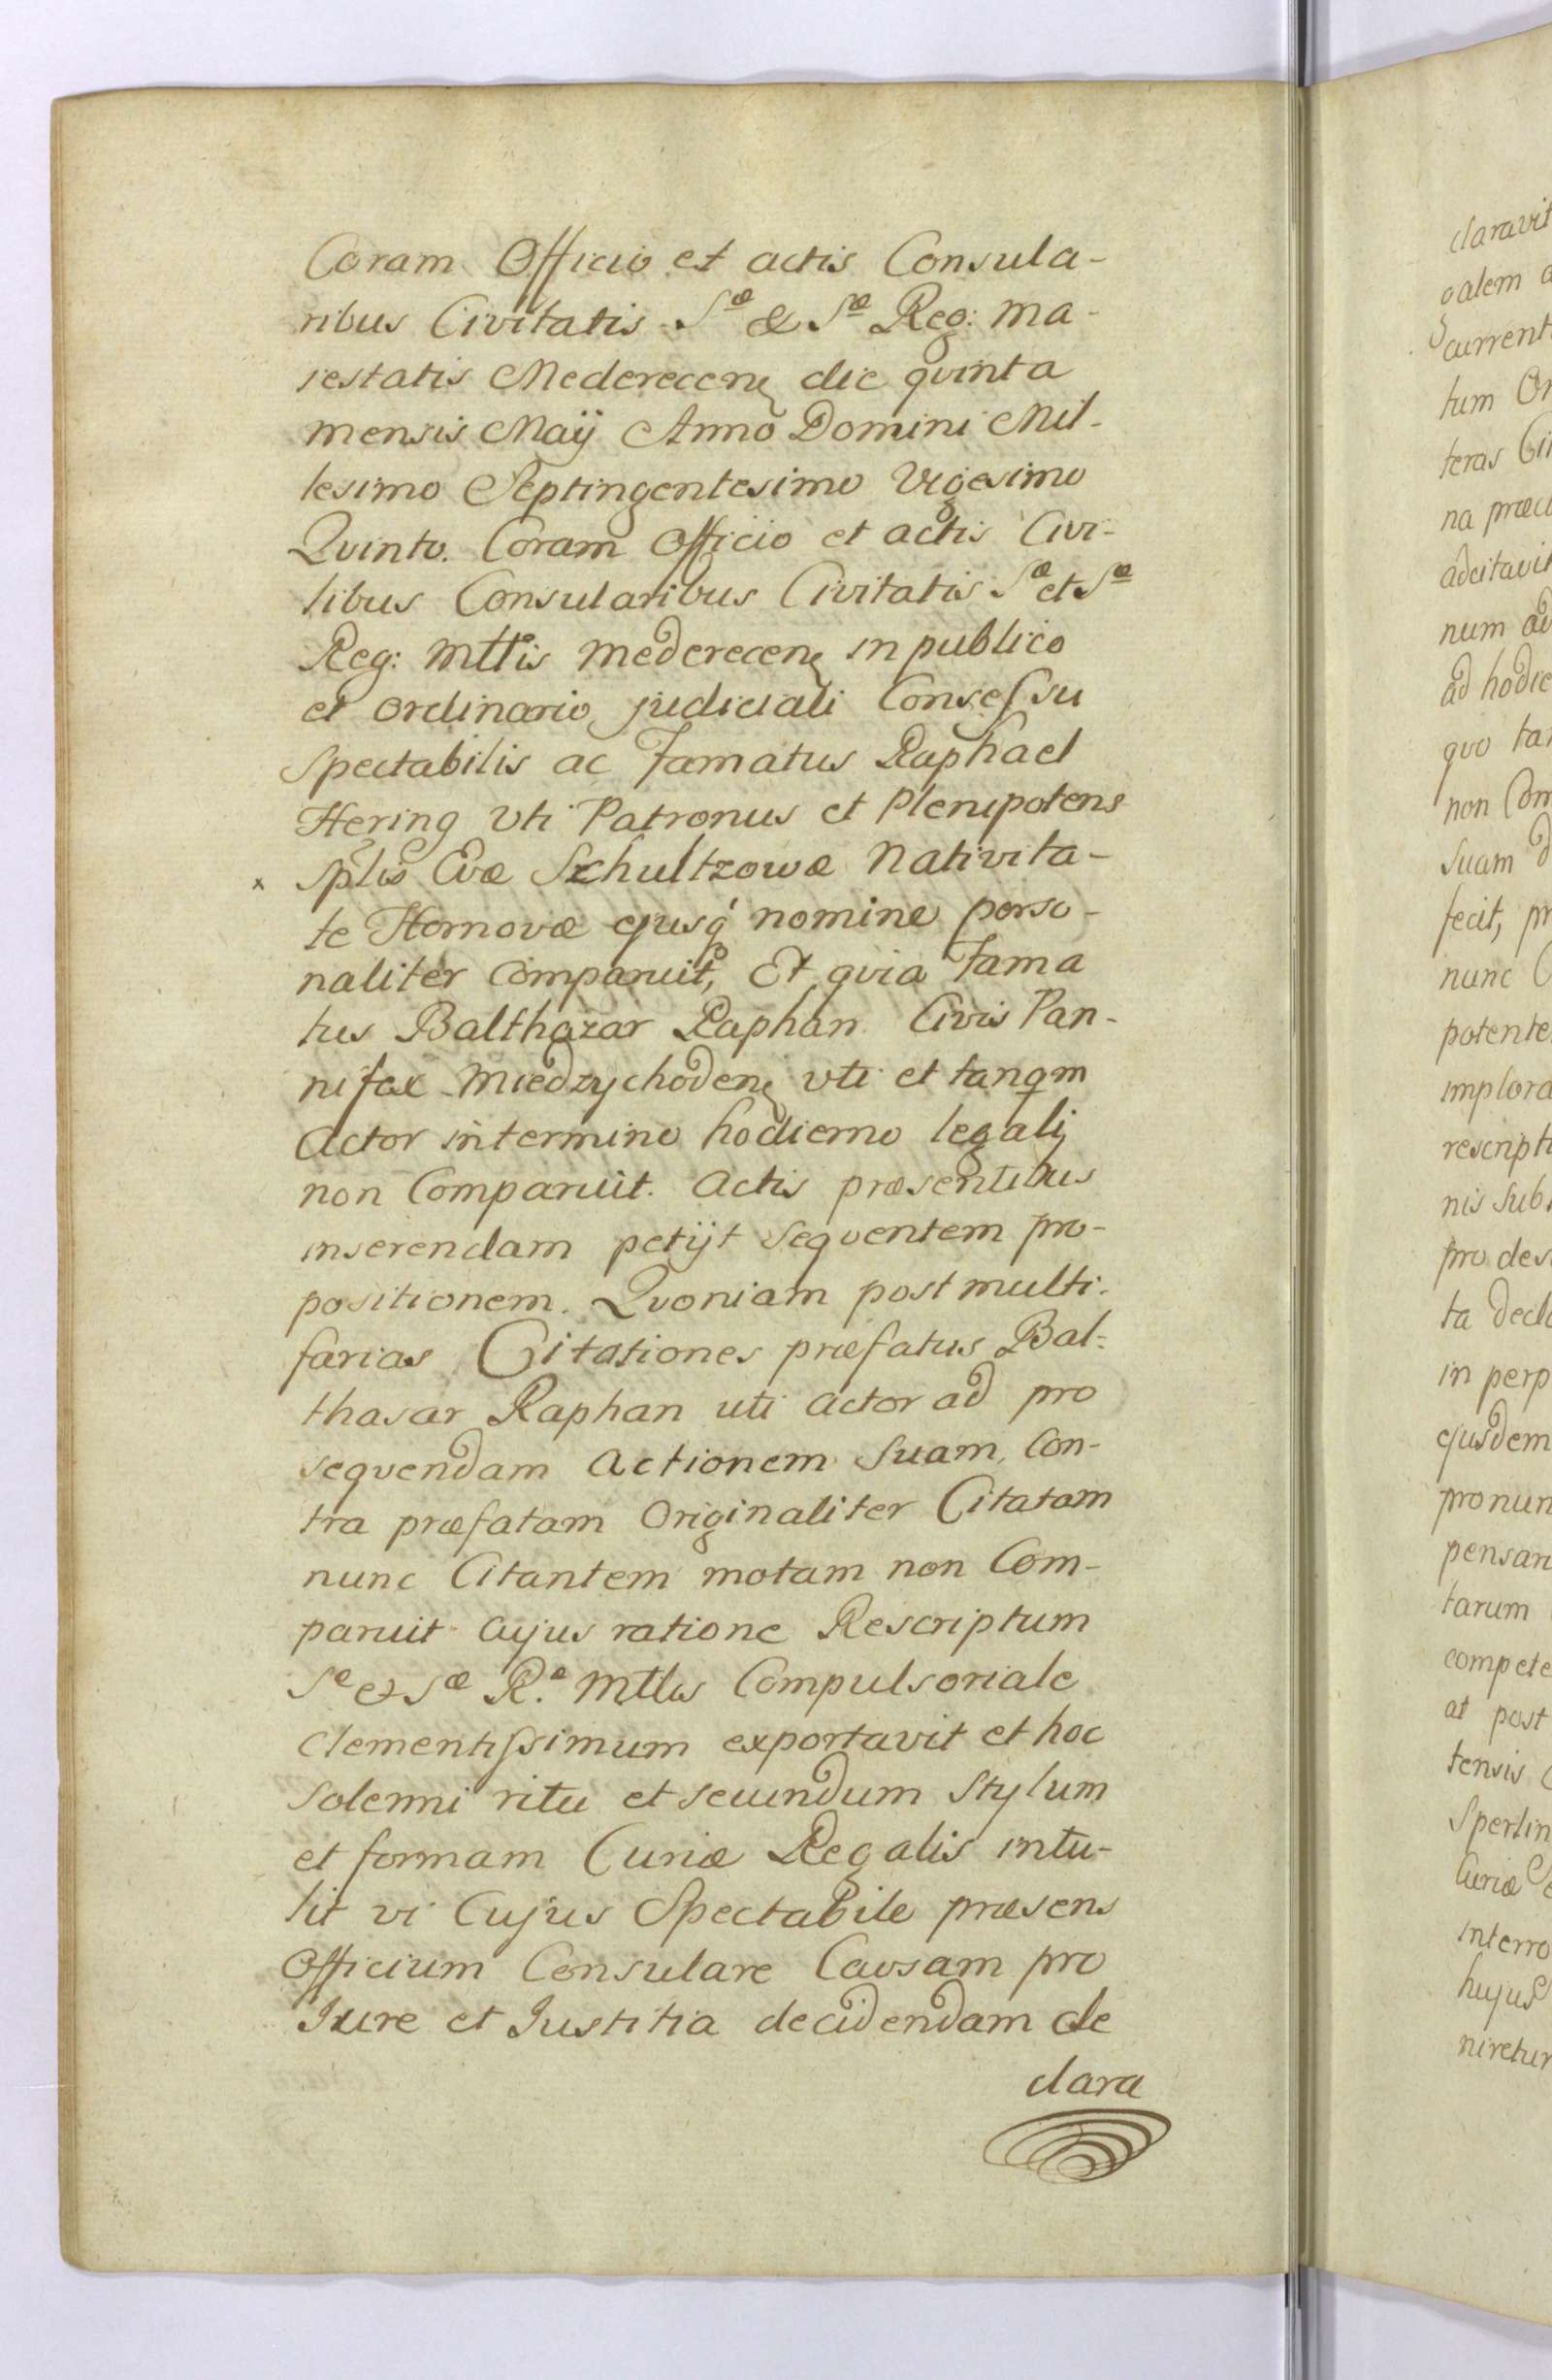 Coram Officio et actis Consula-
ribus Civitatis Sæ & Sæ Reg: Ma-
iestatis Mederecenę die qvinta
mensis Maÿ Anno Domini Mil-
lesimo Septingentesimo Vigesimo
Qvinto. Coram Officio et actis Civi-
libus Consularibus Civitatis Sæ et Sæ
Reg: Mttis Mederecenę in publico
et ordinario judiciali Consessu
Spectabilis ac Famatus Raphael
Hering Vti Patronus et Plenipotens
x Splis Evæ Szchultzowæ Nativita-
te Hornovæ ejusq́ nomine perso-
naliter Comparuit, Et qvia Fama
tus Balthazar Raphan Civis Pan-
nifex Miedzychodenę vti et tanqm
Actor in termino hodierno legali
non Comparuit. Actis præsentibus
inserendam petijt Seqventem pro-
positionem. Qvoniam post multi-
farias Citationes præfatus Bal-
thasar Raphan uti Actor ad pro
seqvendam Actionem Suam Con-
tra præfatam Originaliter Citatam
nunc Citantem motam non Com-
paruit Cujus ratione Rescriptum
Sæ et Sæ Ræ Mttis Compulsoriale
Clementissimum exportavit et hoc
Solenni ritu et secundum Stylum
et formam Curiæ Regalis intu-
lit vi Cujus Spectabile præsens
Officium Consulare Cavsam pro
Jure et Justitia decidendam de
clara
claravit
oalem
current
tum
teras
na
adcitavit
num ad
ad hodie
quo
non Com
Suam
fecit,
nunc
potente
implora
rescripti
nis Sub
pro des
ta decla
in perp
ejusdem
pronun
pensan
tarum
compete
at post
tensis
Sperlin
Curiæ
interro
hujus
niretur